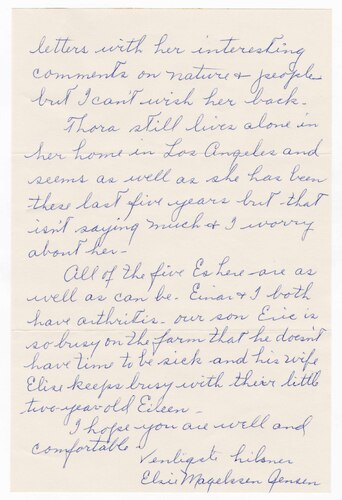 letters with her interesting
comments on nature & people
but I can't wish her back.
Thora still lives alone in
her home in Los Angeles and
seems as well as she has been
these last five years but that
isn't saying much & I worry
about her.
All of the five Es here are as
well as can be. Einar & I both
have arthritis. our son Eric is
so busy on the farm that he doesn't
have time to be sick and his wife
Elise keeps busy with their little
two-year old Eileen.
I hope you are well and
comfortable.
Venligste hilsner
Elsie Magelssen Jensen